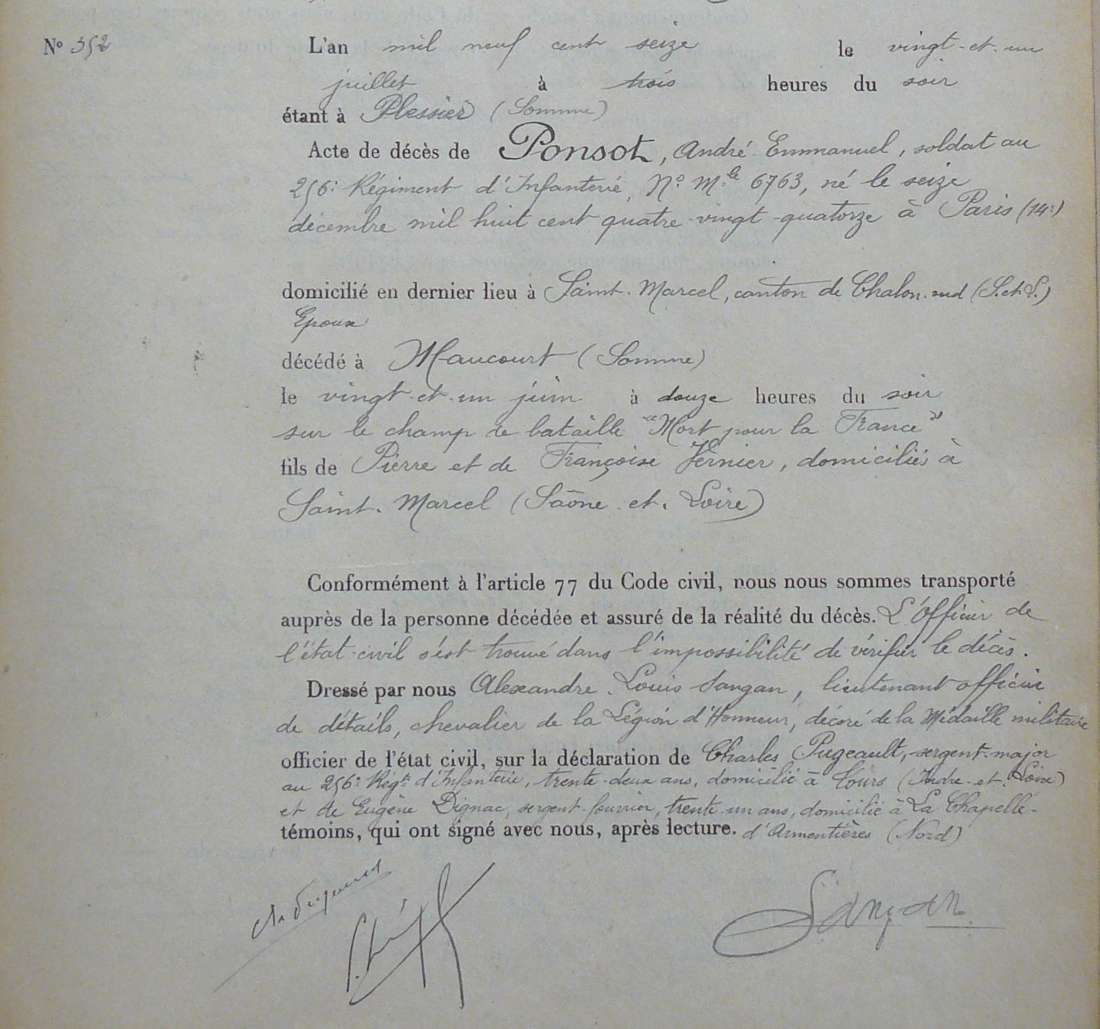 N° 352 L'an mil neuf cent seize le vingt-et-un
juillet à trois heures du soir
étant à Plessier (Somme)
Acte de décès de Ponsot, André Emmanuel, soldat au
256e Régiment d'Infanterie, N° Mle 6763, né le seize
décembre mil huit cent quatre-vingt-quatorze à Paris (14e)
domicilié en dernier lieu à Saint-Marcel, canton de Chalon-sud (S.et.L.)
Epoux
décédé à Maucourt (Somme)
le vingt-et-un juin à douze heures du soir
sur le champ de bataille "Mort pour la France"
fils de Pierre et de Françoise Vernier, domiciliés à
Saint-Marcel (Saône-et-Loire)
Conformément à l'article 77 du Code civil, nous nous sommes transporté
auprès de la personne décédée et assuré de la réalité du décès. L'officier de
l'état-civil s'est trouvé dans l'impossibilité de vérifier le décès.
Dressé par nous Alexandre Louis Sangan, lieutenant officier
de détails, chevalier de la Légion d'Honneur, décoré de la Médaille militaire
officier de l'état civil, sur la déclaration de Charles Pugeault, sergent-major
au 256e Régt d'Infanterie, trente-deux ans, domicilié à Tours (Indre-et-Loire)
et de Eugène Dignac, sergent-fourrier, trente-un ans, domicilié à La Chapelle-
témoins, qui ont signé avec nous, après lecture. d'Armentières (Nord)
Sangan